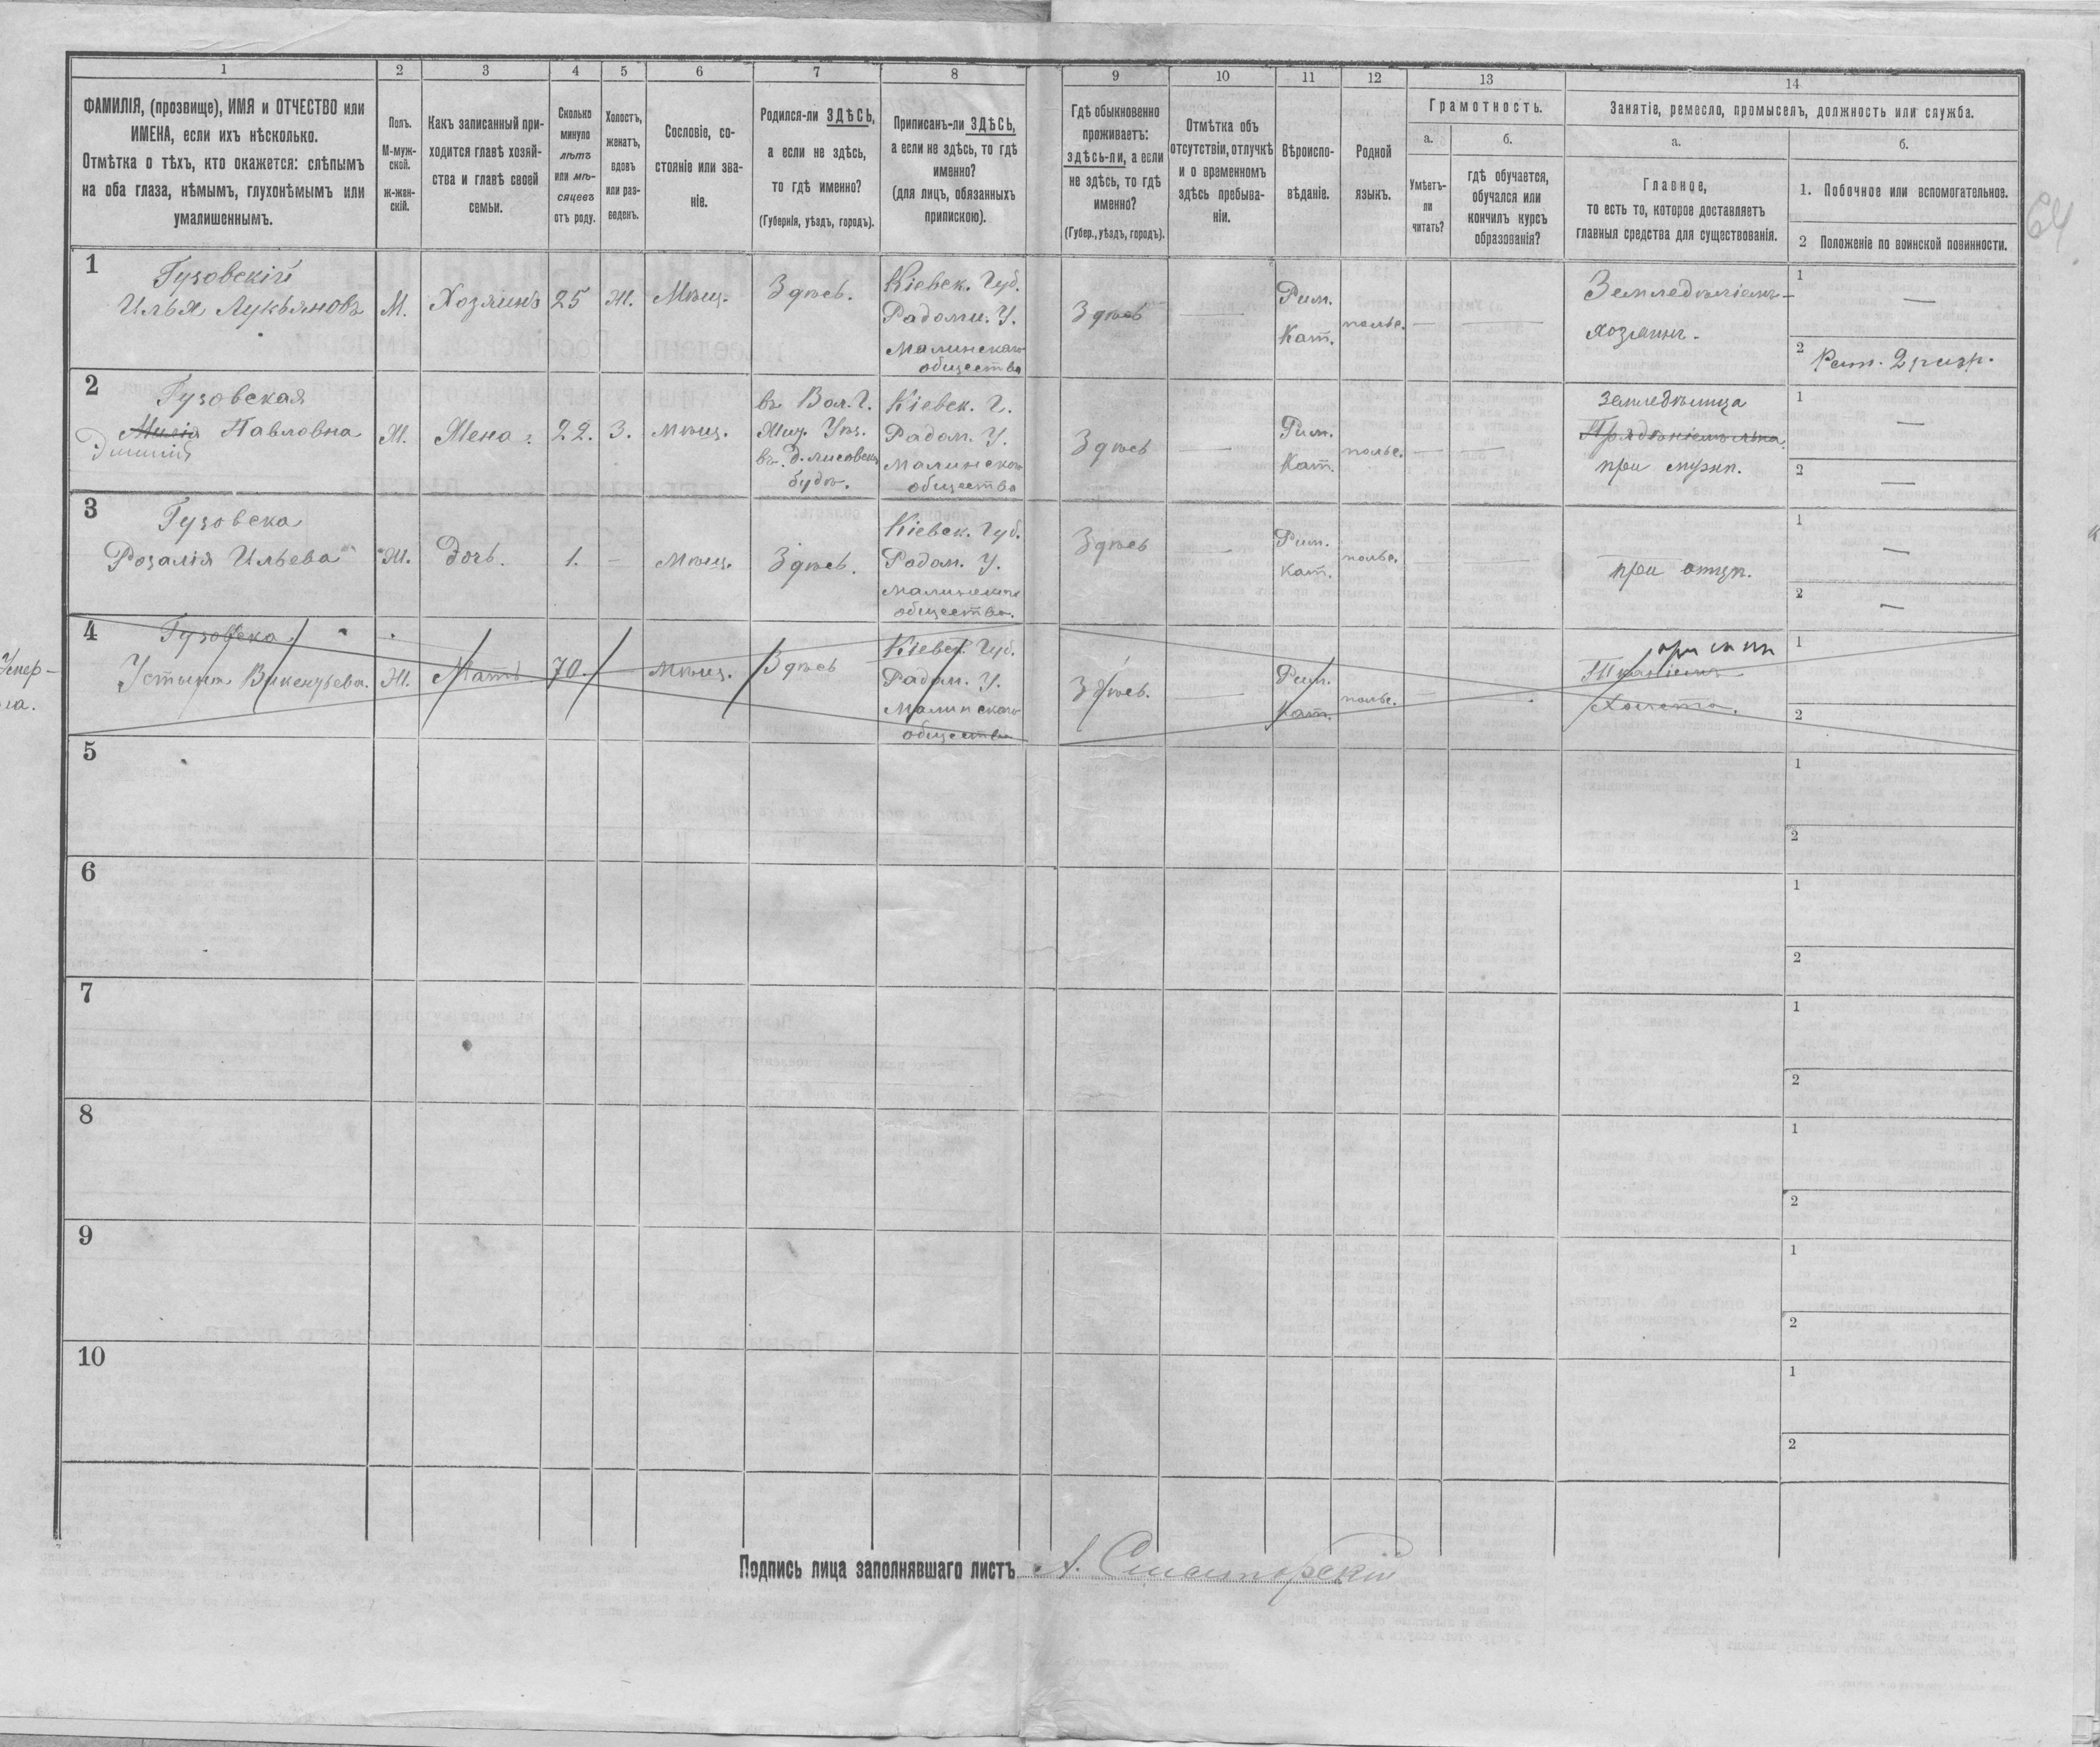 1 2 3 4 5 6 7 8 9 10 11 12 13 14
ФАМИЛІЯ, (прозвище), ИМЯ и ОТЧЕСТВО или
ИМЕНА, если ихъ нѣсколько.
Отмѣтка о тѣхъ, кто окажется: слѣпымъ
на оба глаза, нѣмымъ, глухонѣмымъ или
умалишеннымъ.
Полъ.
М-муж-
ской.
Ж-жен-
скій.
Какъ записанный при-
ходится главѣ хозяй-
ства и главѣ своей
семьи.
Сколько
минуло
лѣтъ
или мѣ-
сяцевъ
отъ роду.
Холостъ,
женатъ,
вдовъ
или раз-
веденъ.
Сословіе, со-
стояніе или зва-
ніе.
Родился-ли ЗДѢСЬ,
а если не здѣсь,
то гдѣ именно?
(Губернія, уѣздъ, городъ).
Приписанъ-ли ЗДѢСЬ,
а если не здѣсь, то гдѣ
именно?
(для лицъ, обязанныхъ
припискою).
Гдѣ обыкновенно
проживаетъ:
здѣсь-ли, а если
не здѣсь, то гдѣ
именно?
(Губер., уѣздъ, городъ).
Отмѣтка объ
отсутствіи, отлучкѣ
и о временномъ
здѣсь пребыва-
ніи.
Вѣроиспо-
вѣданіе.
Родной
языкъ.
Грамотность.
а.
Умѣетъ-
ли
читать?
б.
гдѣ обучается,
обучался или
кончилъ курсъ
образованія?
Занятіе, ремесло, промыселъ, должность или служба.
а.
Главное,
то есть то, которое доставляетъ
главныя средства для существованія.
б.
1. Побочное или вспомогательное.
2 Положеніе по воинской повинности.
64
1
Гузовскій
Илья Лукьяновъ
М.
Хозяинъ
25
Ж.
Мѣщ.
Здѣсь.
Кіевск. Губ.
Радоми. У.
Малинскаго
общества
Здѣсь
—
Рим.
Кат.
польс.
—
—
Земледѣліемъ-
хозяинъ.
1 —
2 Рат. 2 разр.
2
Гузовская
Павловна
Ж.
Жена.
22.
З.
мѣщ.
въ Вол. Г.
Жит. Уѣз.
въ д.
будѣ.
Кіевск. Г.
Радом. У.
Малинскаго
общества
Здѣсь
—
Рим.
Кат.
польс.
—
—
земледѣлица
при мужѣ.
1 —
2 —
3
Гузовска
Розалія Ильева
Ж.
Дочь.
1.
—
мѣщ.
Здѣсь.
Кіевск. Губ.
Радом. У.
Малинскаго
общества.
Здѣсь
—
Рим.
кат.
польс.
—
—
при отцѣ.
1 —
2 —
Умер-
ла.
4
Гузовска
Устина Викентьева.
Ж.
Мать
70.
—
мѣщ.
Здѣсь
Кіевск. Губ.
Радом. У.
Малинскаго
общества
Здѣсь.
—
Рим.
Кат.
польс.
—
—
1
2
5
1
2
6
1
2
7
1
2
8
1
2
9
1
2
10
1
2
Подпись лица заполнявшаго листъ